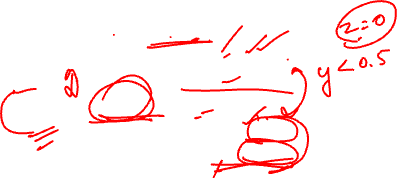 z=0
y<0.5